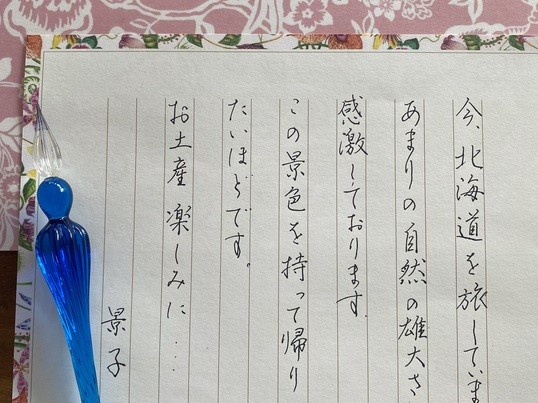 今、北海道を旅していま
あまりの自然の雄大さ
感激しております。
この景色を持って帰り
たいほどです。
お土産楽しみに...
景子